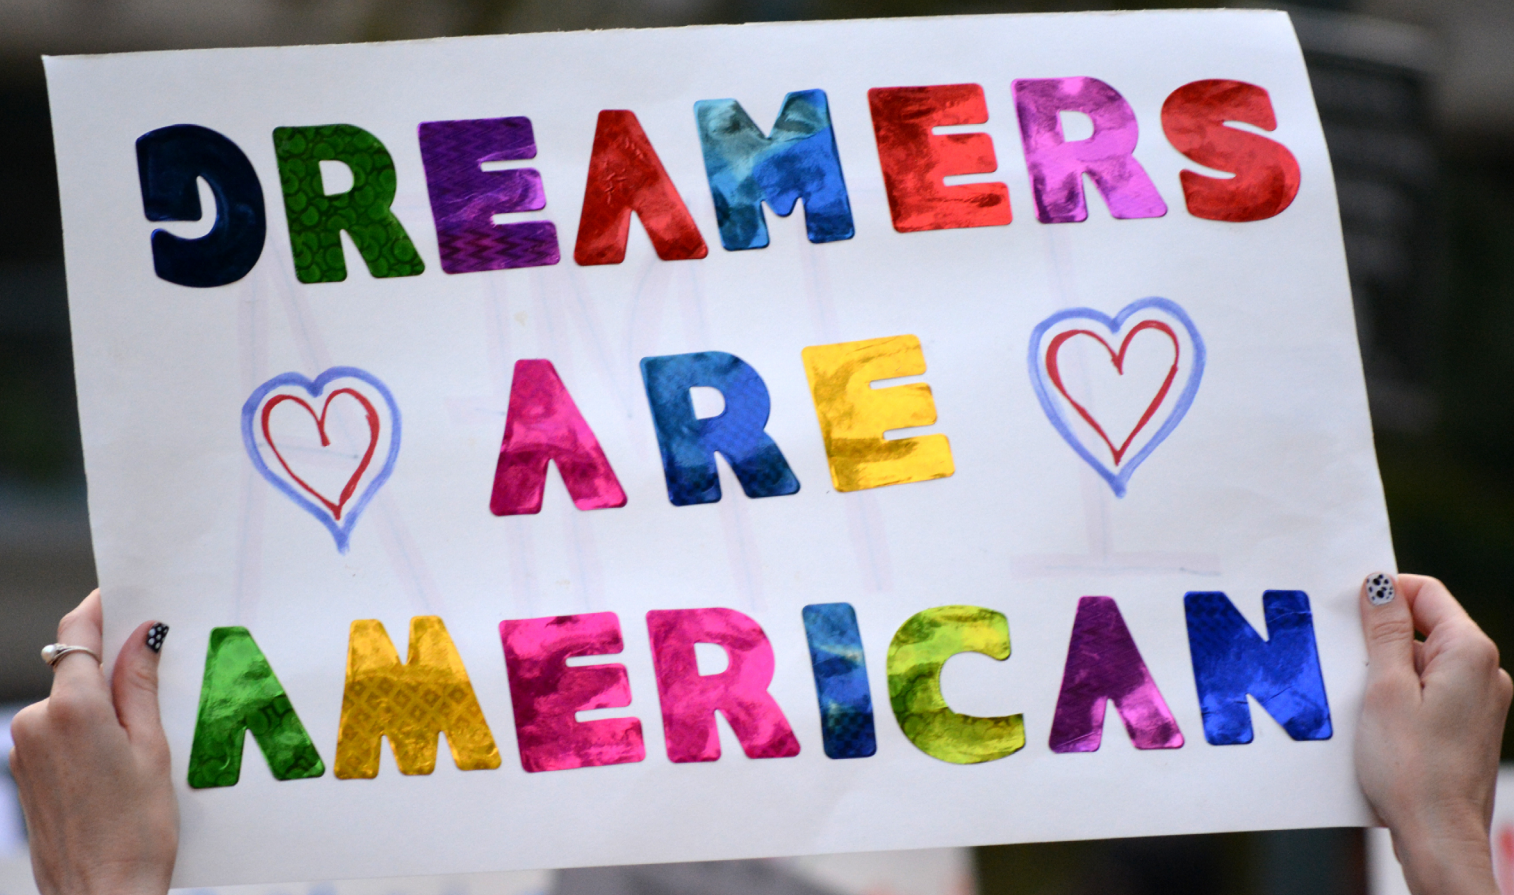 DREAMERS
ARE
AMERICAN